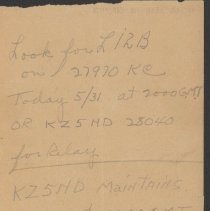 Look for LI2B
on 27970 KC
Today 5/31 at 2000 GMT
OR KZ5HD 28040
for Relay
KZ5HD Maintains